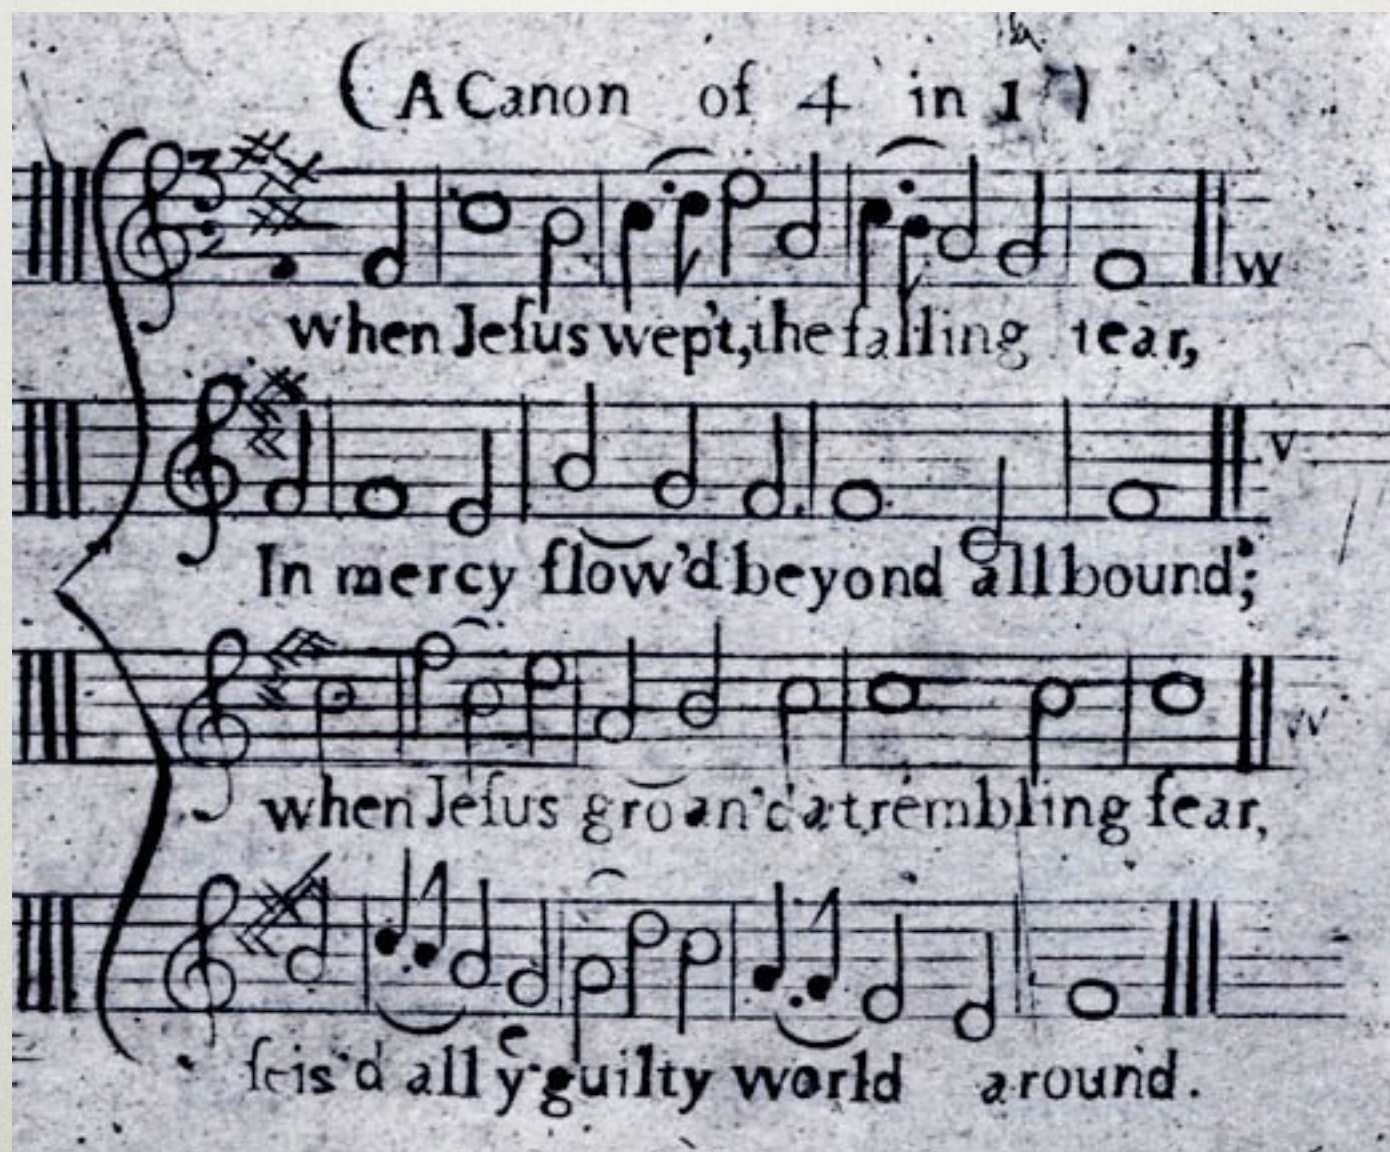 (A Canon of 4 in 1)
3
2
when Jeſus wep't, the falling tear,
In mercy flow'd beyond all bound;
when Jeſus groan'd a trembling fear,
ſeis'd all yᵉ guilty world around.